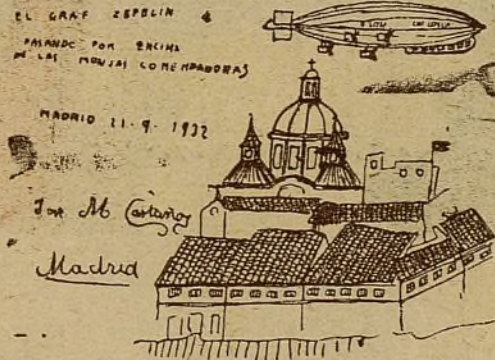 EL GRAF ZEPELIN
PASANDO POR ENCIMA
DE LAS MONJAS COMENDADORAS
MADRID 21-9-1932
José M Castaños
Madrid